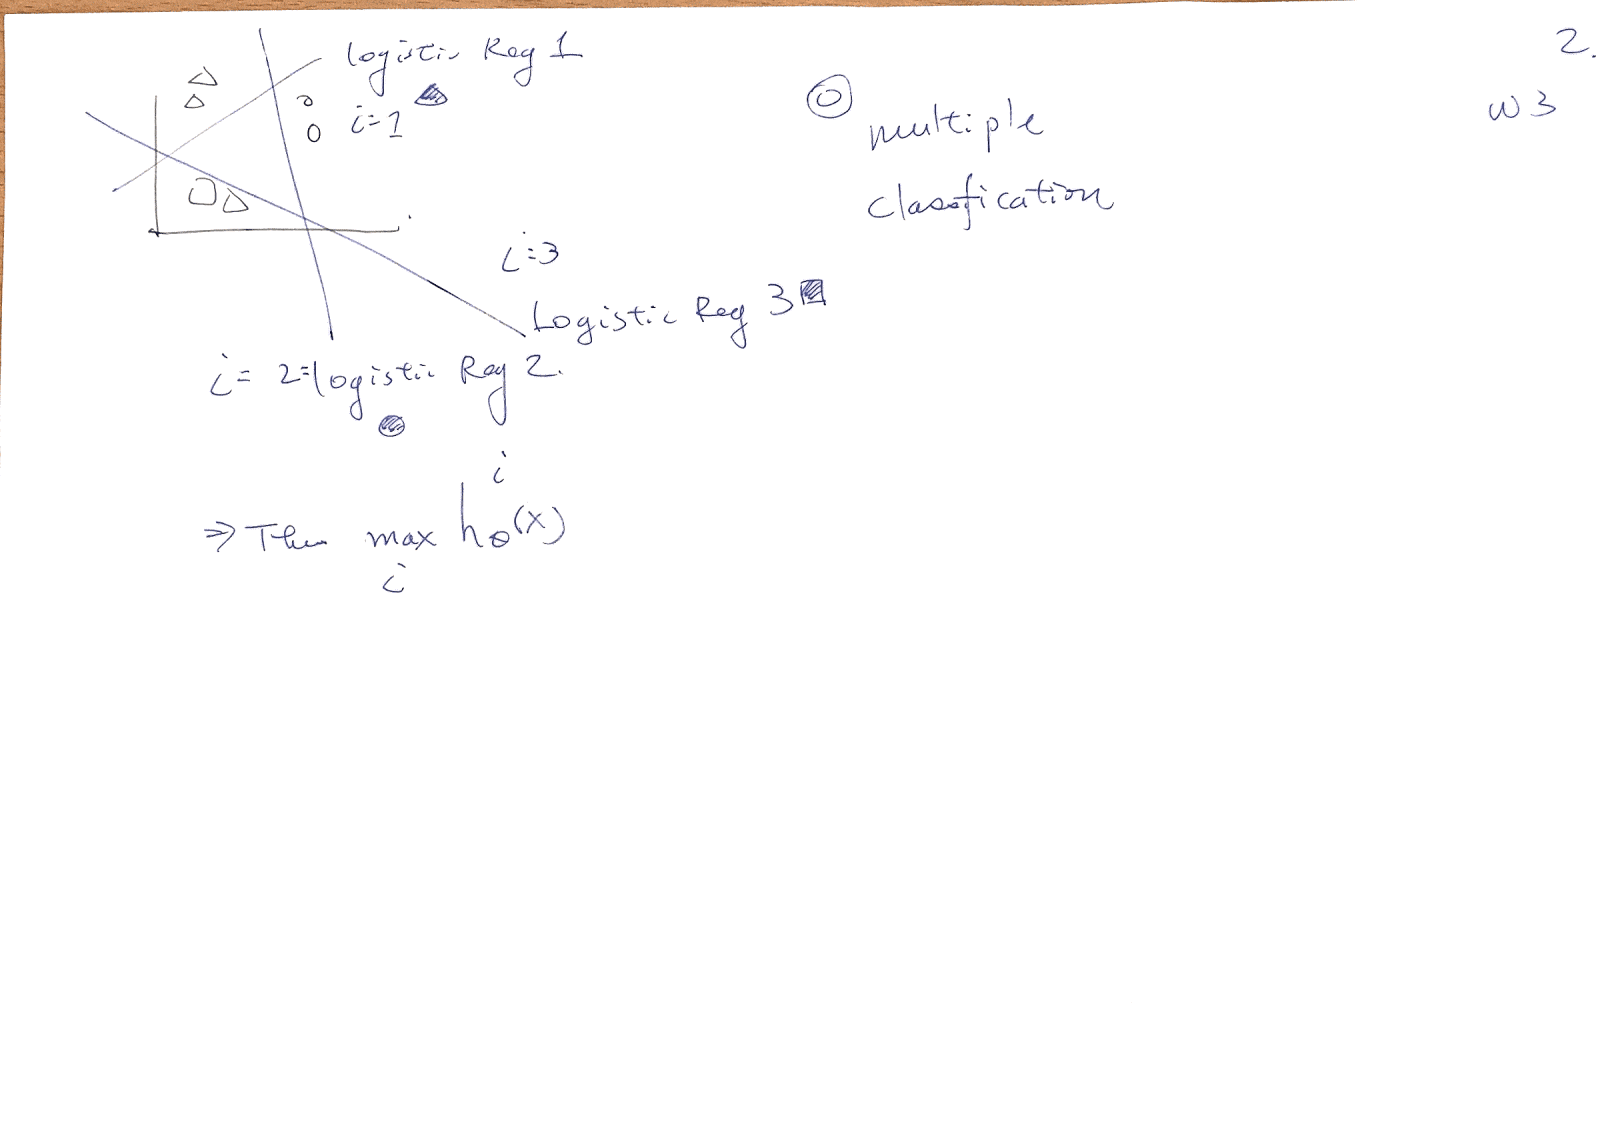 2.
w3
logistic Reg 1
i=1
multiple
classfication
i=3
Logistic Reg 3
i= 2=logistic Reg 2.
i
⇒ Then max hθ(x)
i